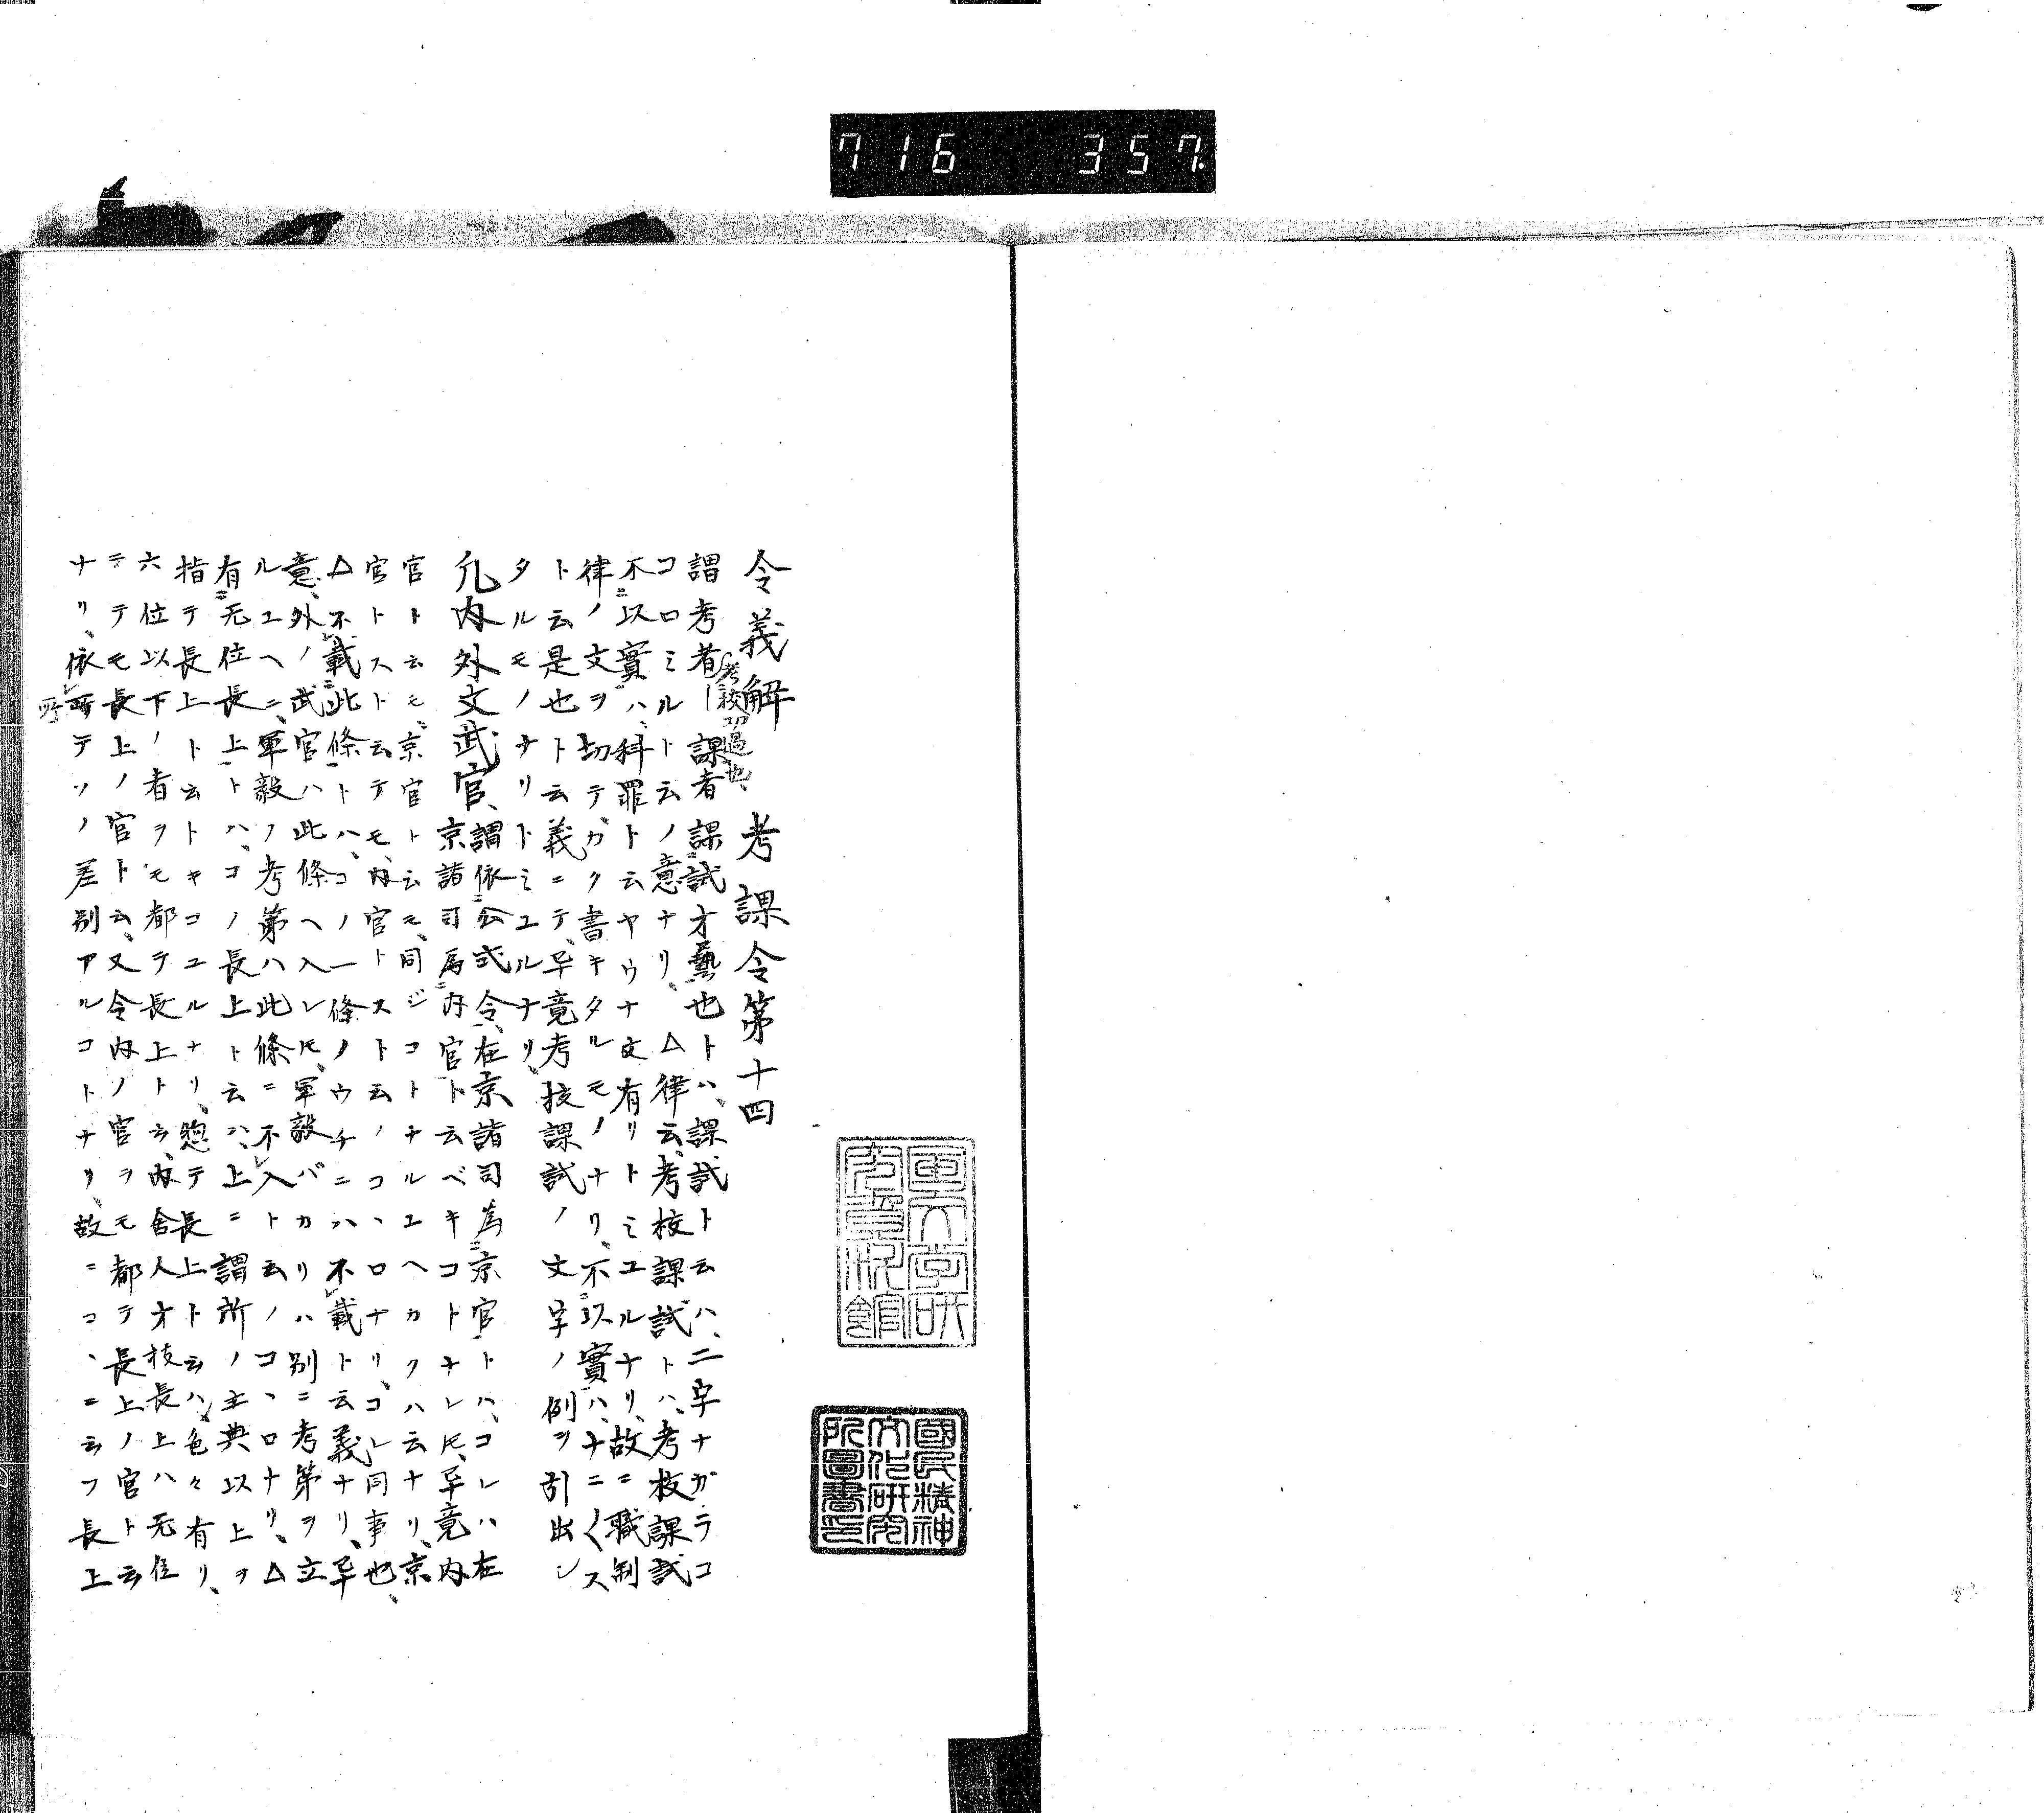 716 357.
令義解 考課令第十四
謂考者考挍功過也、課者課試才藝也トハ、課試ト云ハ、二字ナガラコ
コロミルト云ノ意ナリ、△律云、考校課試トハ、考校課試
不以實ハ、科罪ト云ヤウナ文有リトミユルナリ、故ニ職制
律ノ文ヲ切テ、カク書キタルモノナリ、不以實ハ、ナニ〱ス
ト云是也ト云義ニテ、畢竟考挍課試ノ文字ノ例ヲ引出シ
タルモノナリトミユルナリ、
凡内外文武官、謂依公式令、在京諸司為京官トハ、コレハ在
京諸司為内官ト云ベキコトナレ𪜈、畢竟内
官ト云モ、京官ト云モ、同ジコトナルユヘカクハ云ナリ、京
官トスト云テモ、内官トスト云ノコヽロナリ、コレ同事也、
△不載此條トハ、コノ一條ノウチニハ不載ト云義ナリ、畢
竟、外ノ武官ハ此條ヘ入レ𪜈、軍毅バカリハ別ニ考第ヲ立
ルユヘニ、軍毅ノ考第ハ此條ニ不入ト云ノコヽロナリ、△
有无位長上トハ、コノ長上ト云ハ、上ニ謂所ノ主典以上ヲ
指テ長上ト云トキコユルナリ、惣テ長上ト云ハ、色々有リ、
六位以下ノ者ヲモ都テ長上ト云、内舎人才技長上ハ无位
ニテモ長上ノ官ト云、又令内ノ官ヲモ都テ長上ノ官ト云
ナリ、依所テソノ差別アルコトナリ、故ニコヽニ云フ長上
所
國民精神
文化研究
所圖書印